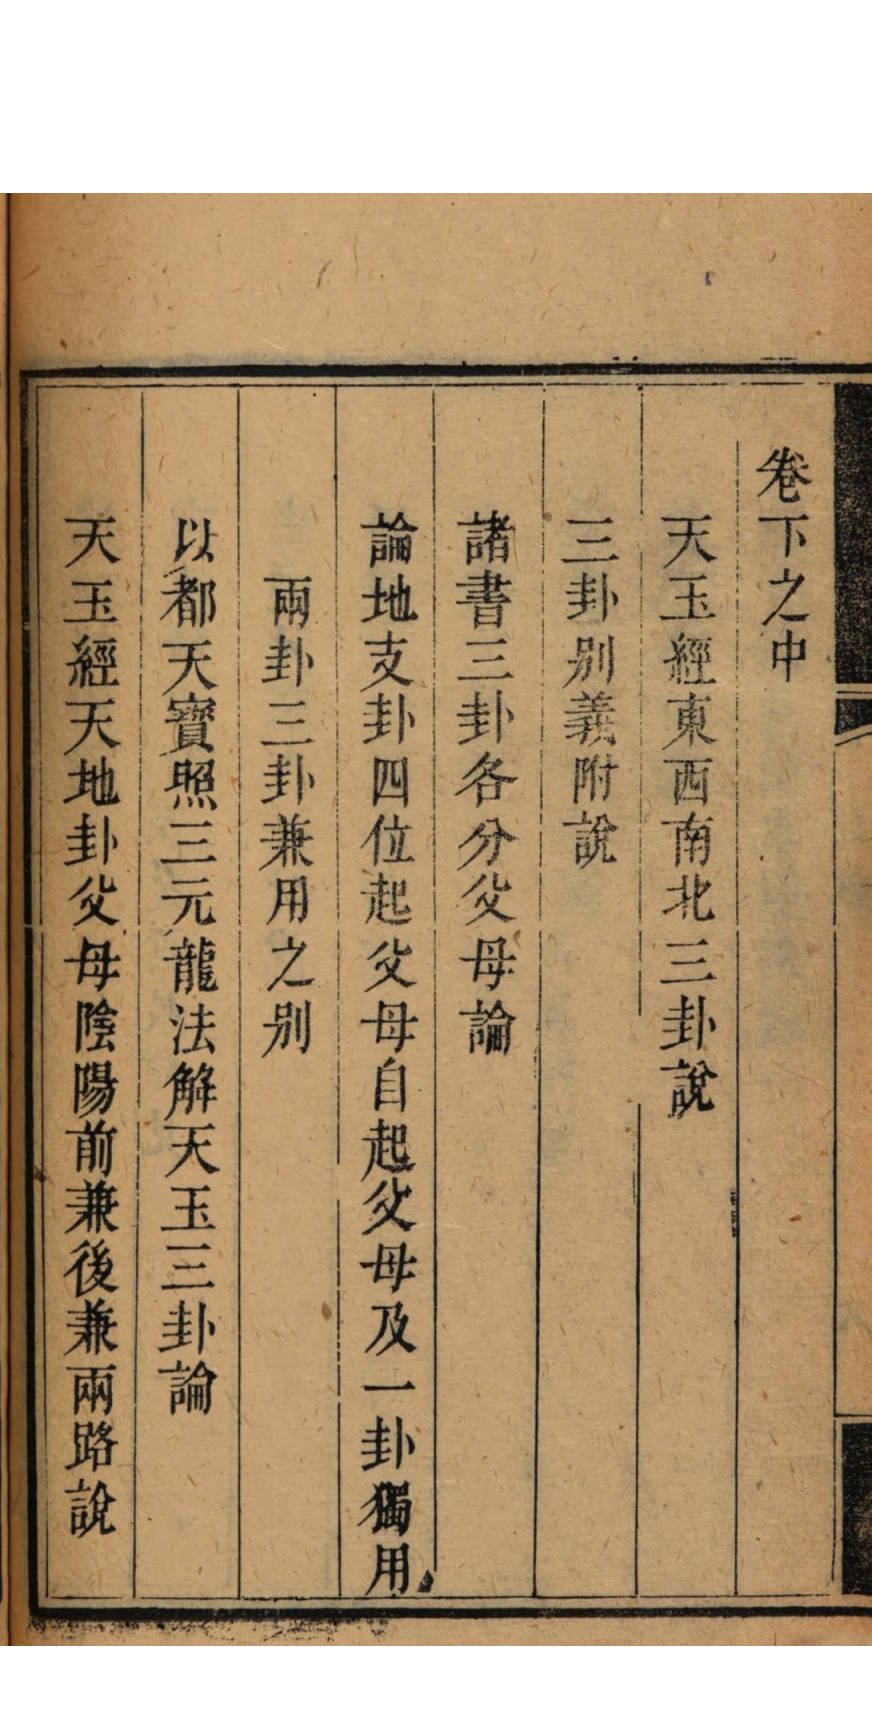 卷下之中
天玉經東西南北三卦說
三卦別義附說
諸書三卦各分父母論
論地支卦四位起父母自起父母及一卦獨用
兩卦三卦兼用之別
以都天寶照三元龍法解天玉三卦論
天玉經天地卦父母陰陽前兼後兼兩路說